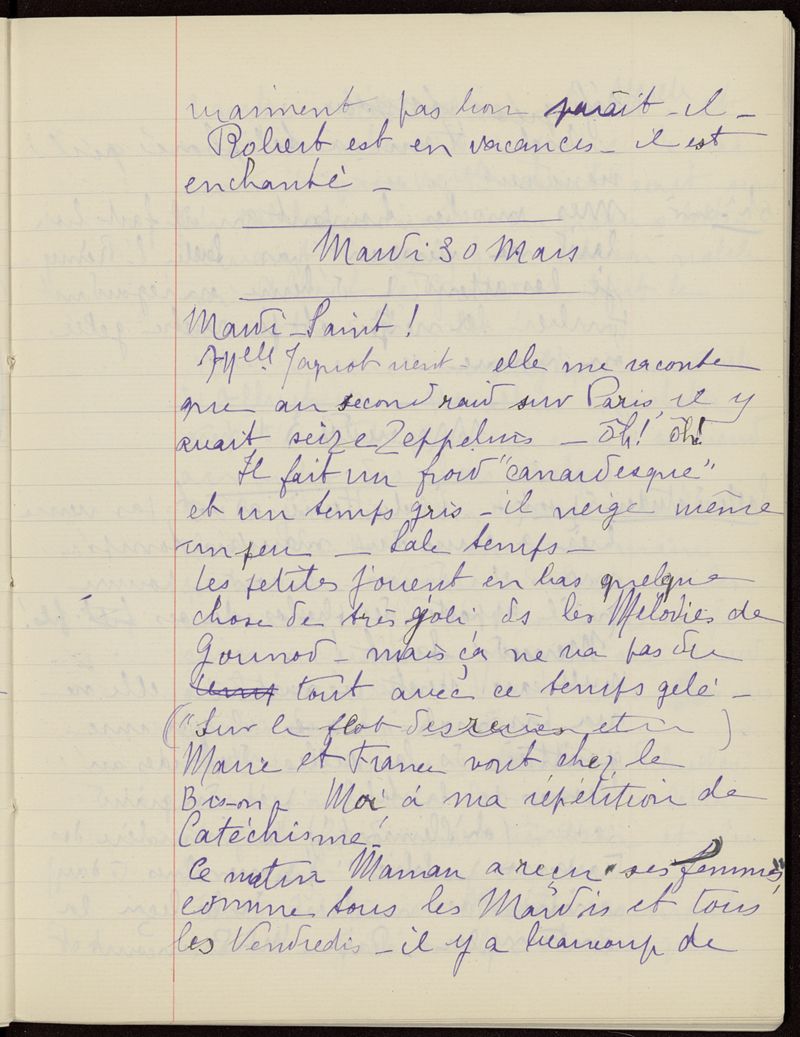 vraiment pas bon paraît-il –
Robert est en vacances – il est
enchanté –
Mardi 30 Mars
Mardi-Saint !
Melle Jaquot vient – elle me raconte
que au second raid sur Paris, il y
avait seize Zeppelins – Oh! Oh!
Il fait un froid "canardesque"
et un temps gris – il neige même
un peu – Sale temps –
Les petites jouent en bas quelque
chose de très joli ds les Mélodies de
Gounod – mais ça ne va pas du
tout avec ce temps gelé –
("Sur le flot des
Marie et France vont chez le
Moi à ma répétition de
Catéchisme!
Ce matin Maman a reçu "ses femmes"
comme tous les Mardis et tous
les Vendredis – il y a beaucoup de